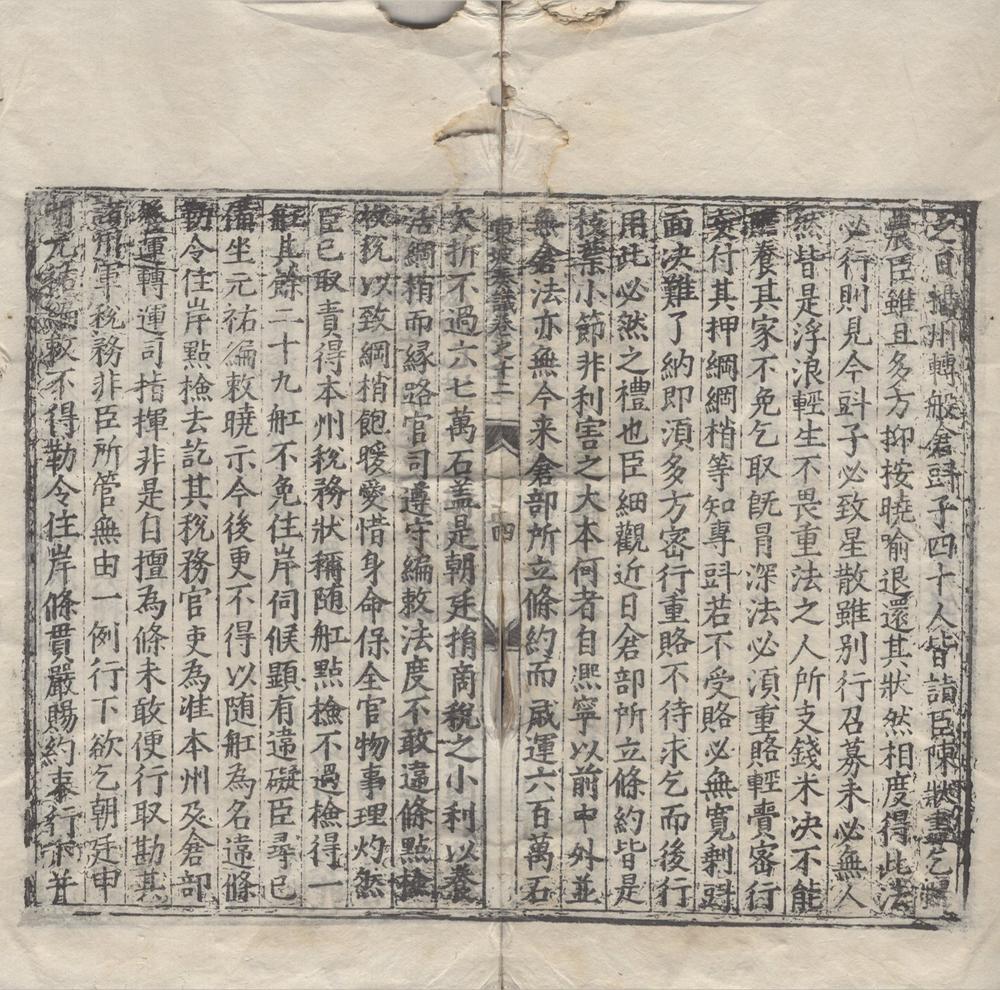 之日揚州轉般倉㪷子四十人皆詣臣陳狀盡乞歸
農臣雖且多方抑按曉喻退還其狀然相度得此法
必行則見今㪷子必致星散雖別行召募未必無人
然皆是浮浪輕生不畏重法之人所支錢米决不能
贍養其家不免乞取旣冐深法必湏重賂輕賣密行
交付其押綱綱梢等知專㪷若不受賂必無寛剩㪷
面决難了納即湏多方密行重賂不待求乞而後行
用此必然之禮也臣細觀近日倉部所立條約皆是
枝葉小節非利害之大本何者自熈寧以前中外並
無倉法亦無今来倉部所立條約而歲運六百萬石
東坡奏議卷之十二
四
欠折不過六七萬石盖是朝廷捐商稅之小利以養
活綱梢而縁路官司遵守編敕法度不敢違條點檢
收稅以致綱梢飽暖愛惜身命保全官物事理灼然
臣已取責得本州稅務狀稱随舡點檢不過檢得一
舡其餘二十九舡不免住岸伺候顯有違礙臣尋已
備坐元祐編敕曉示今後更不得以随舡為名違條
勒令住岸點檢去訖其稅務官吏為准本州及倉部
發運轉運司指揮非是自擅為條未敢便行取勘其
諸州軍稅務非臣所管無由一例行下欲乞朝廷申
明元祐編敕不得勒令住岸條貫嚴賜約束行下并